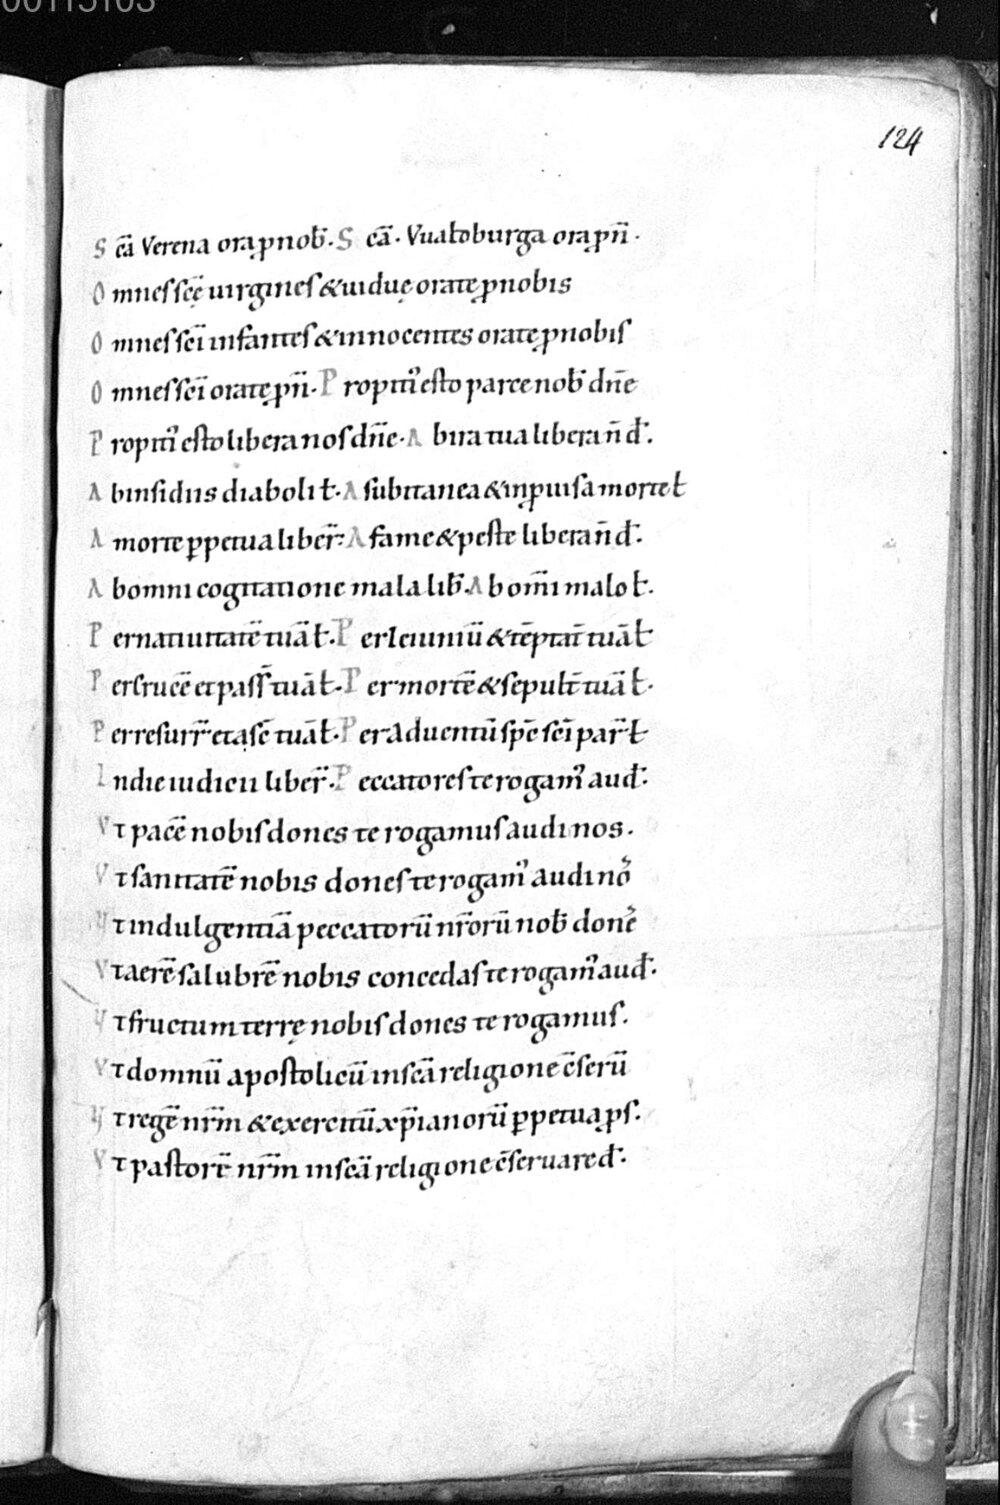 00115103
124
S cā Verena ora ꝓ nob̄. S cā. Vualtburga ora ꝓ n̄.
O mnes scę̄ uirgines & uiduę orate ꝓ nobis
O mnes sc̄i infantes & innocentes orate ꝓ nobis
O mnes sc̄i orate ꝓ n̄. P ropitiꝰ esto parce nob̄ dn̄e
P ropitiꝰ esto libera nos dn̄e. A b ira tua libera n̄ d̄.
A b insidiis diaboli ƚ. A subitanea & inprouisa morte ƚ
A morte ꝑpetua liber̄. A fame & peste libera n̄ d̄.
A b omni cogitatione mala lib̄. A b om̄i malo ƚ.
P er natiuitatē tuā ƚ. P er Ieiuniū & tēptat̄ tuā ƚ
P er crucē et pass̄ tuā ƚ. P er mortē & sepult̄ tuā ƚ.
P er resurr̄ et asc̄ tuā ƚ. P er Aduentū sp̄c sc̄i par̄ ƚ
I n die iudicii liber̄. P eccatores te rogamꝰ aud̄.
V t pacē nobis dones te rogamus audi nos.
V t sanitatē nobis dones te rogamꝰ audi no᷒
V t indulgentiā peccatorū nr̄orū nob̄ done᷒
V t aerē salubrē nobis concedas te rogamꝰ aud̄.
V t fructum terrę nobis dones te rogamus.
V t domnū apostolicū in scā religione c̄seru̅
V t regē nr̄m & exercitū xp̄ianorū ꝑpetua ꝓs.
V t pastorē nr̄m in scā religione c̄seruare d̄.